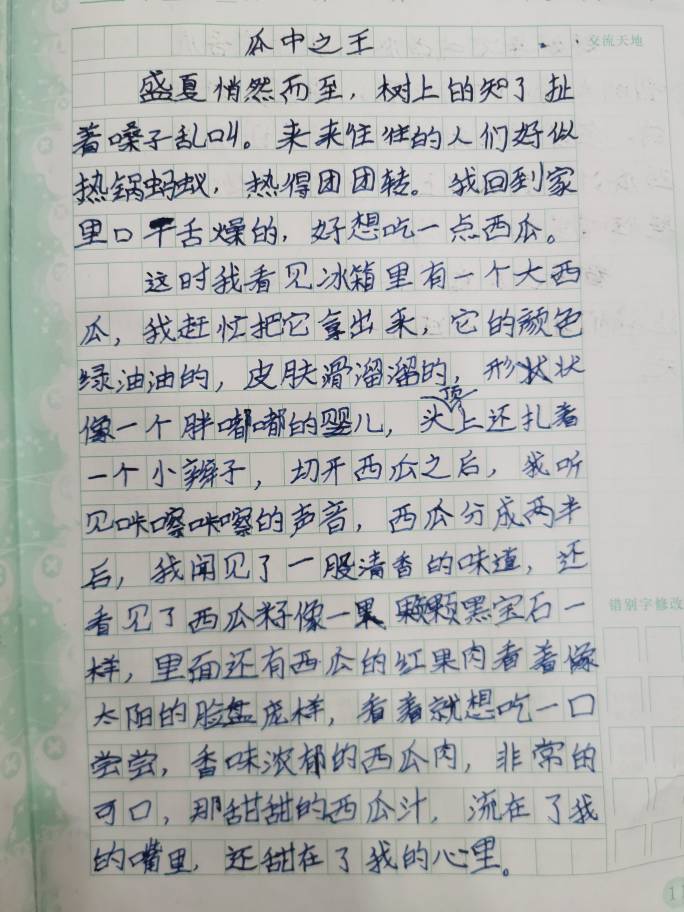 瓜中之王
交流天地
盛夏悄然而至，树上的知了扯
着嗓子乱叫。来来往往的人们好似
热锅蚂蚁，热得团团转。我回到家
里口干舌燥的，好想吃一点西瓜。
这时我看见冰箱里有一个大西
瓜，我赶忙把它拿出来，它的颜色
绿油油的，皮肤滑溜溜的，形状
像一个胖嘟嘟的婴儿，头顶上还扎着
一个小辫子，切开西瓜之后，我听
见咔嚓咔嚓的声音，西瓜分成两半
后，我闻见了一股清香的味道，还
看见了西瓜籽像一颗颗黑宝石一
错别字修改
样，里面还有西瓜的红果肉看着像
太阳的脸盘庞样，看着就想吃一口
尝尝，香味浓郁的西瓜肉，非常的
可口，那甜甜的西瓜汁，流在了我
的嘴里，还甜在了我的心里。